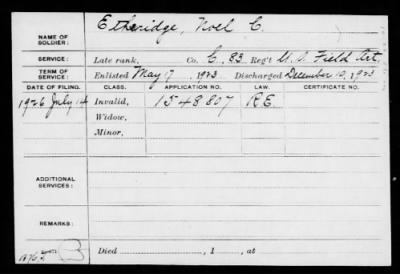 NAME OF SOLDIER: Etheridge, Noel C.
SERVICE: Late rank, Co. C. 83 Reg't U.S. Field Art.
TERM OF SERVICE: Enlisted May 7, 1923. Discharged December 10, 1923
DATE OF FILING. CLASS. APPLICATION NO. LAW. CERTIFICATE NO.
1926 July 14 Invalid, 1548807 RE
Widow,
Minor,
ADDITIONAL SERVICES:
REMARKS:
Died , 1 , at